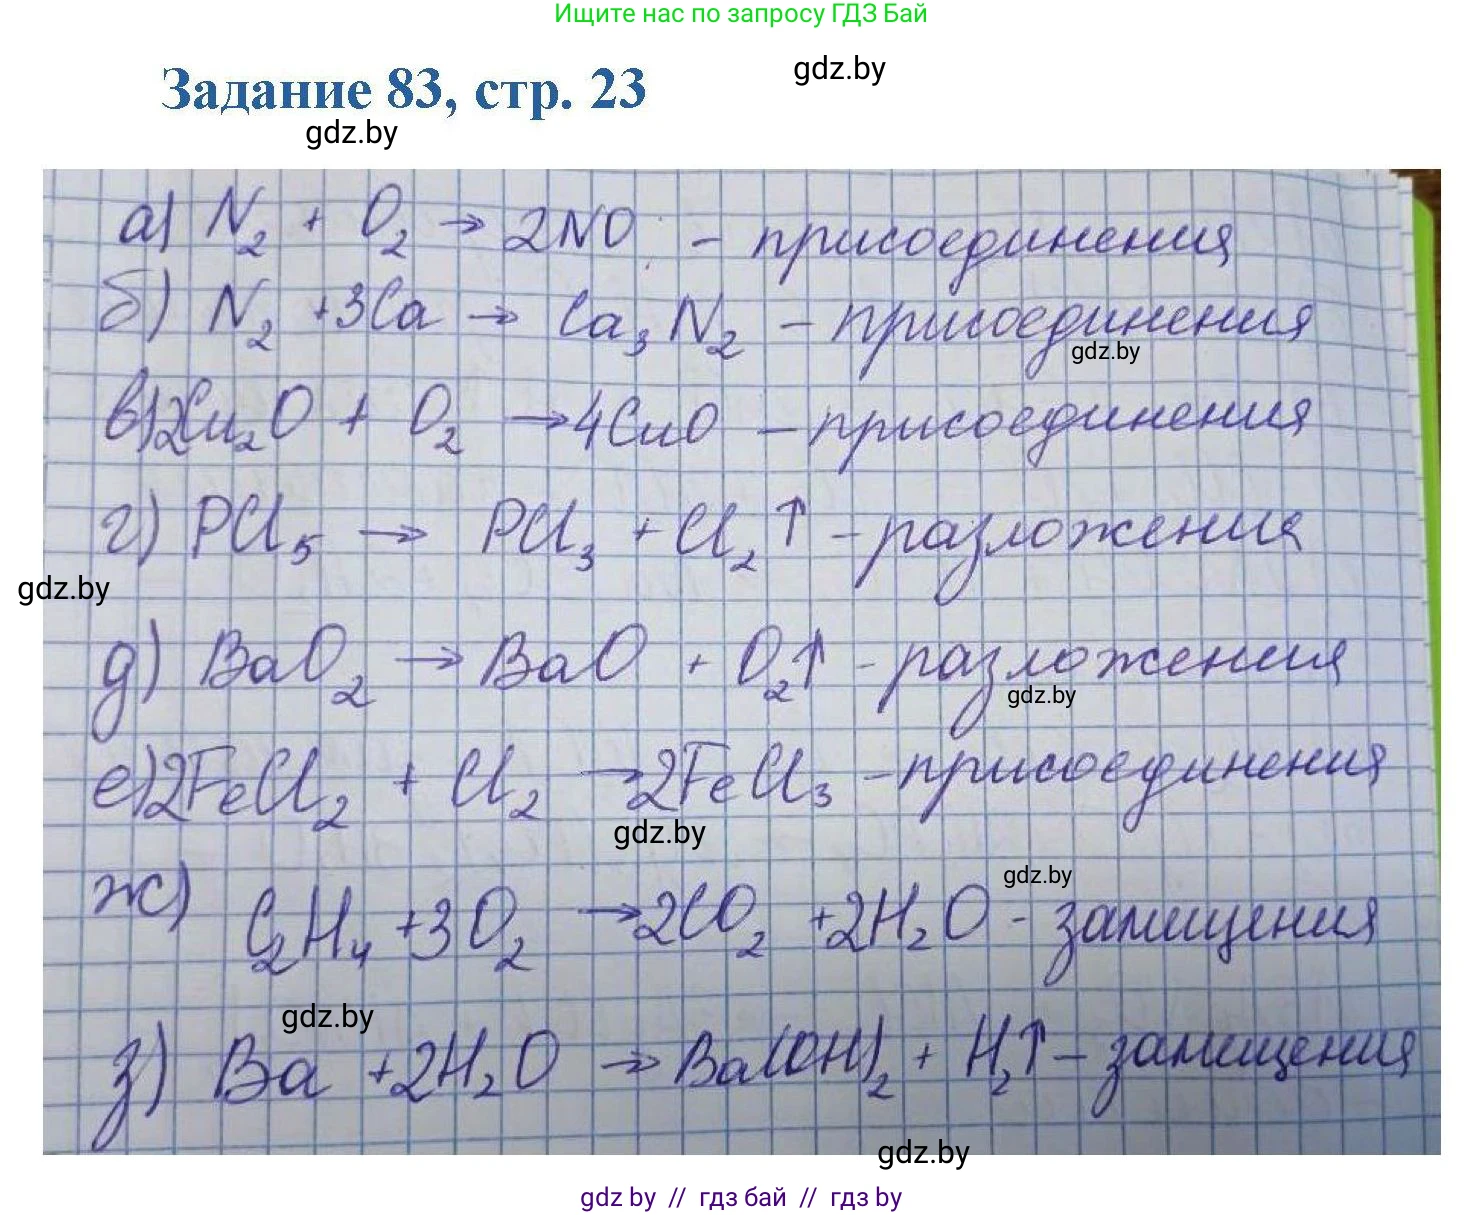 Ищите нас по запросу ГДЗ Бай
Задание 83, стр. 23
gdz.by
gdz.by
а) N₂ + O₂ → 2NO - присоединения
б) N₂ + 3Ca → Ca₃N₂ - присоединения
gdz.by
в) 2Cu₂O + O₂ → 4CuO - присоединения
г) PCl₅ → PCl₃ + Cl₂↑ - разложения
gdz.by
д) BaO₂ → BaO + O₂↑ - разложения
gdz.by
е) 2FeCl₂ + Cl₂ → 2FeCl₃ - присоединения
gdz.by
gdz.by
ж) C₂H₄ + 3O₂ → 2CO₂ + 2H₂O - замещения
gdz.by
з) Ba + 2H₂O → Ba(OH)₂ + H₂↑ - замещения
gdz.by
gdz by // гдз бай // гдз by